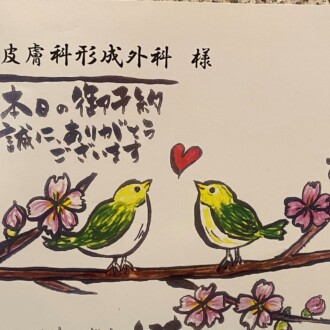 皮膚科形成外科 様
本日の御予約
誠に、ありがとう
ございます